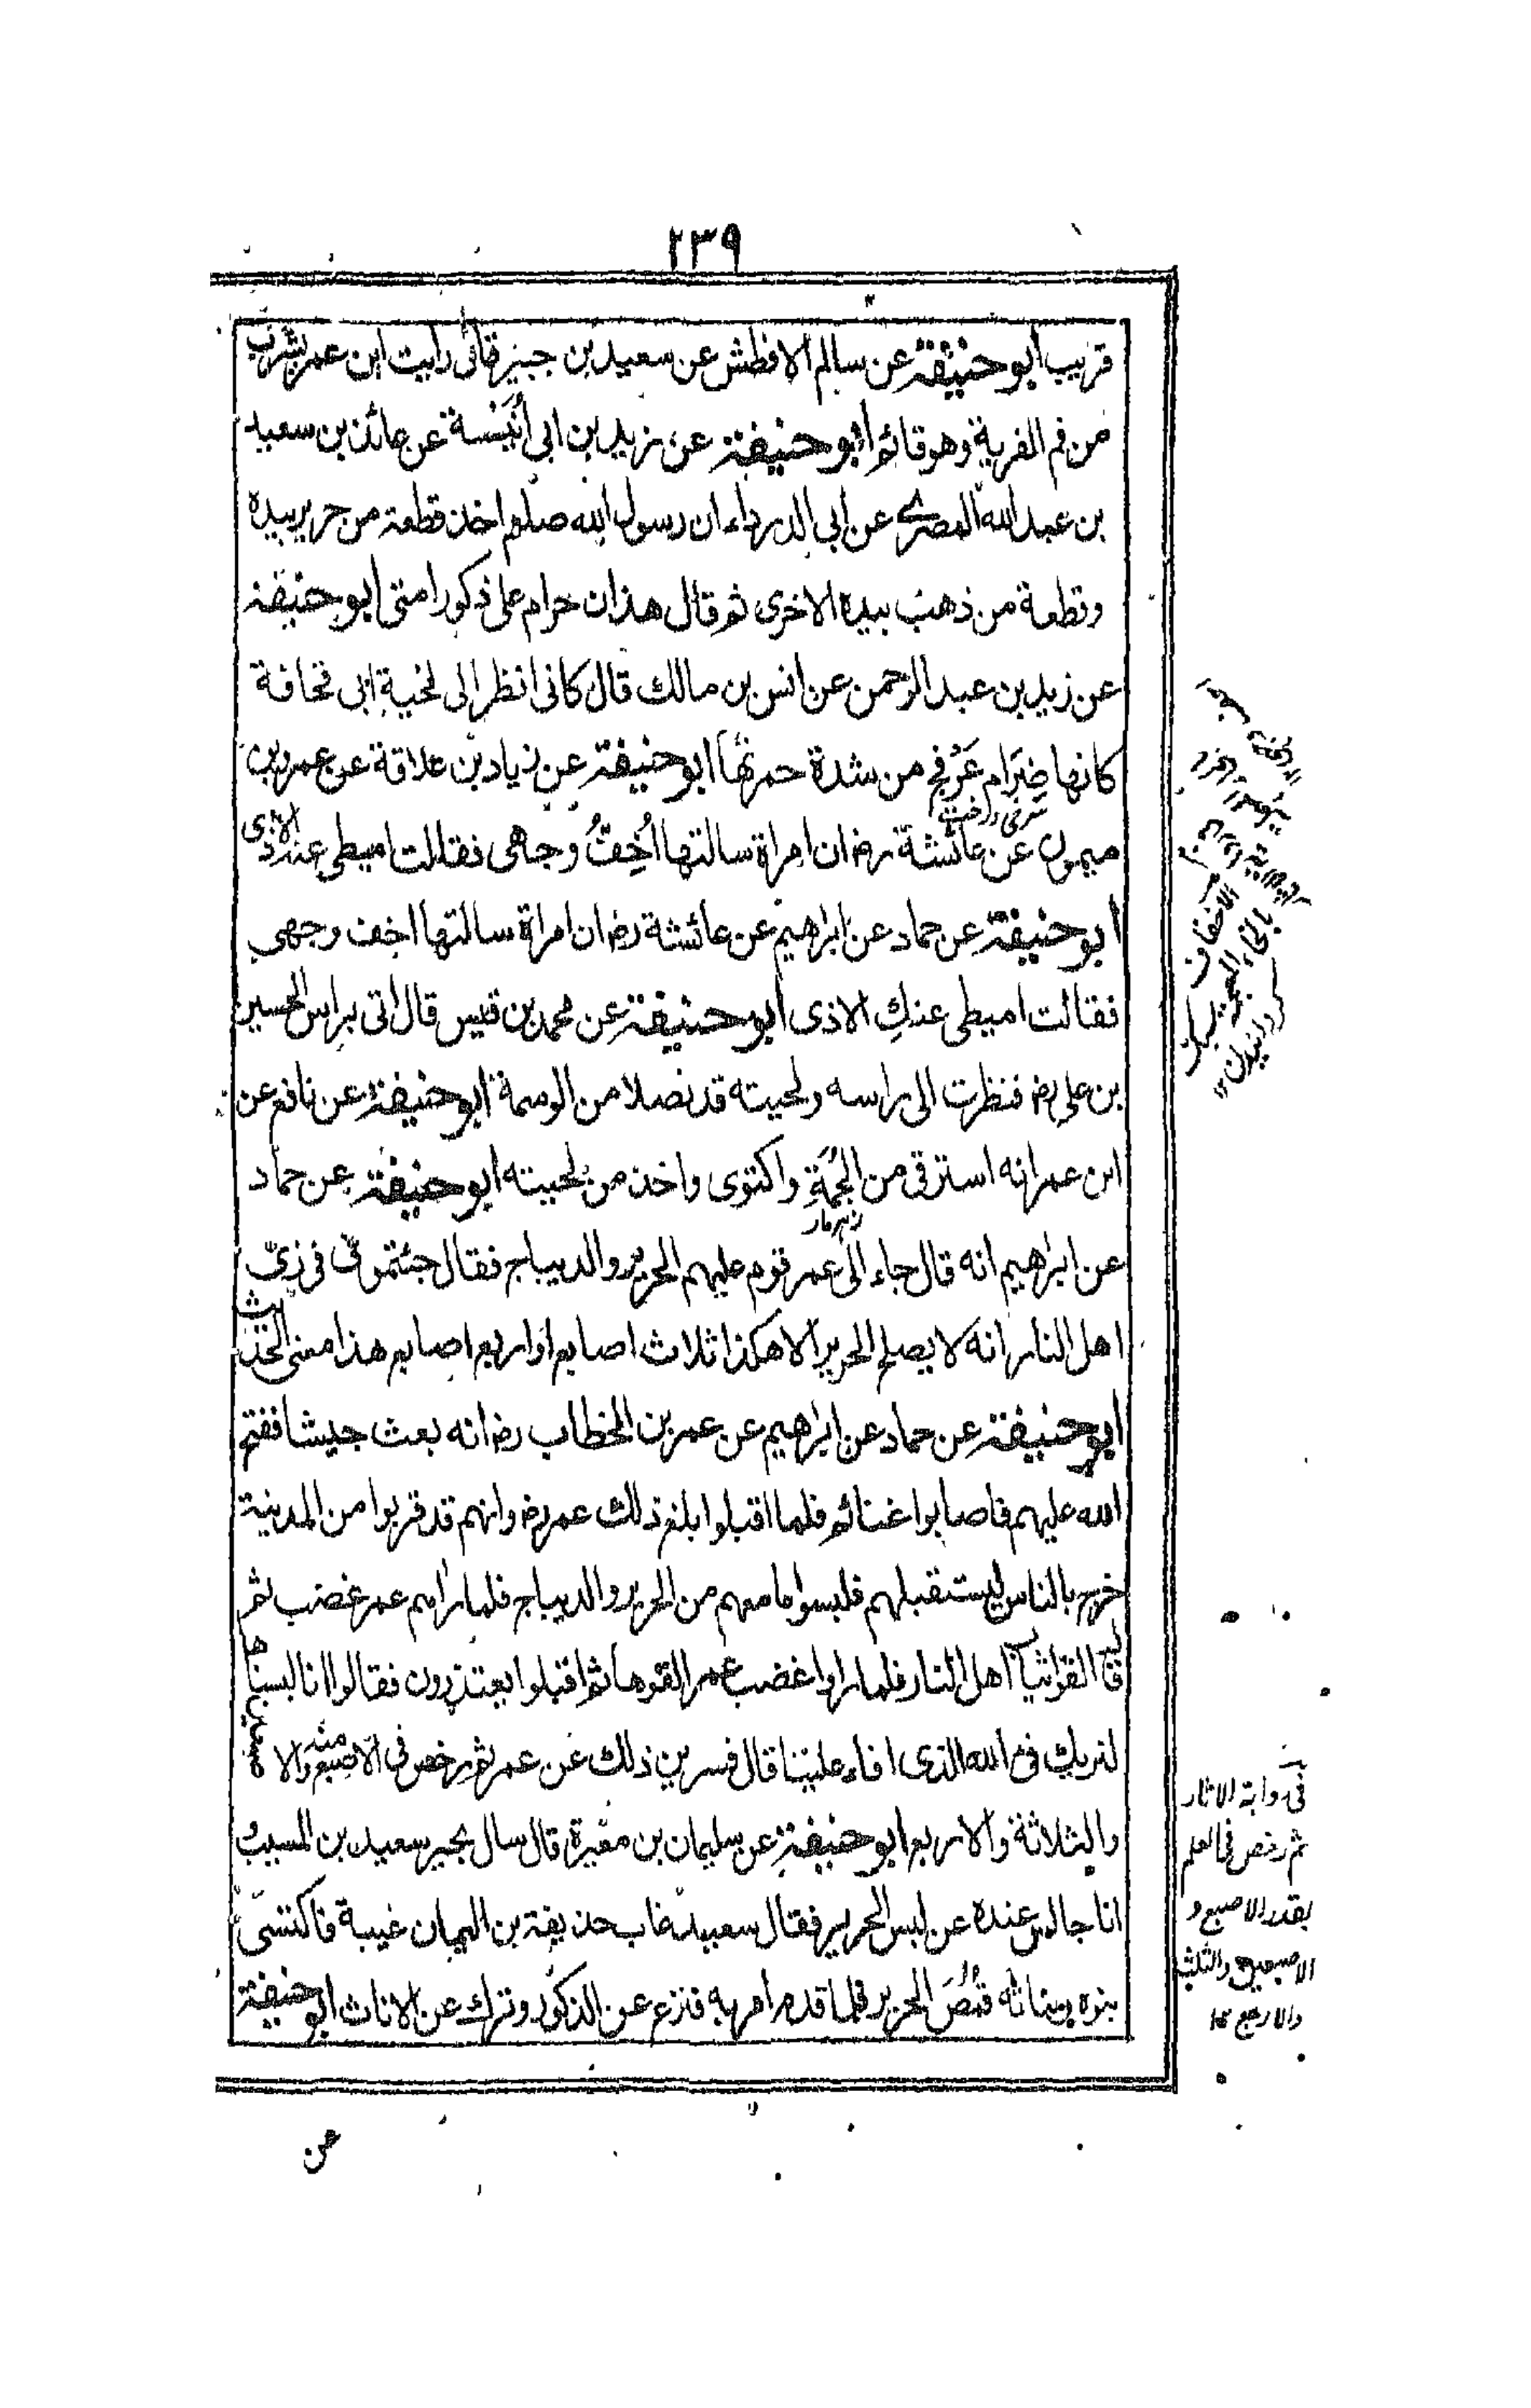 ٢٣٩
قريب ابو حنيفة عن سالم الافطش عن سعيد بن جبير قال رايت ابن عمر يشرب
من فم القربة وهو قائم ابو حنيفة عن زيد بن ابي أُنَيسة عن عائذ بن سعيد
بن عبد الله المصري عن ابي الدرداء ان رسول الله صلعم اخذ قطعة من حرير بيده
وقطعة من ذهب بيده الاخرى ثم قال هذان حرام على ذكور امتى ابو حنيفة
عن زيد بن عبد الرحمن عن انس بن مالك قال كانى انظر الى لحية ابى قحافة
كانها ضِرَام عَرْفج من شدة حمرتها ابو حنيفة عن زياد بن علاقة عن عمرو بن
ميمون عن عائشة رض ان امراة سالتها اُخِفُّ وجهى فقالت اميطى عنك الاذى
ابو حنيفة عن حماد عن ابرٰهيم عن عائشة رض ان امراة سالتها اخف وجهى
فقالت اميطى عنكِ الاذى ابو حنيفة عن محمد بن قيس قال اتى براس الحسين
بن على رض فنظرت الى راسه ولحيته قد نصلا من الوسمة ابو حنيفة عن نافع عن
ابن عمر انه استرقى من الحُمَةِ واكتوى واخذ من لحيته ابو حنيفة عن حماد
زهر مار
عن ابرٰهيم انه قال جاء الى عمر قوم عليهم الحرير والديباج فقال جئتمونى فى زيّ
اهل النار انه لا يصلح الحرير الا هكذا ثلاث اصابع او اربع اصابع هذا معنى الحديث
ابو حنيفة عن حماد عن ابرٰهيم عن عمر بن الخطاب رض انه بعث جيشا ففتح
الله عليهم فاصابوا غنائم فلما اقبلوا بلغ ذلك عمر رض وانهم قد قربوا من المدينة
خرج بالناس ليستقبلهم فلبسوا ما معهم من الحرير والديباج فلما راٰهم عمر غضب ثم
قال القوا ثياب اهل النار فلما راوا غضب عمر القوها ثم اقبلوا يعتذرون فقالوا انا لبسناها
لنريك فئ الله الذى افاء علينا قال فسرى ذلك عن عمر ثم رخص فى الاصبع منه والاصبعين
والثلاثة والاربع ابو حنيفة عن سليمان بن مغيرة قال سال بجير سعيد بن المسيب و
انا جالس عنده عن لبس الحرير فقال سعيد غاب حذيفة بن اليمان غيبة فاكتسىٰ
بنوه وبناته قُمُصَ الحرير فلما قدم امر به فنزع عن الذكور وترك عن الاناث ابو حنيفة
فى رواية الاثار
ثم رخص فى العلم
بقدر الاصبع و
الاصبعين والثلثة
والاربع ١٢
عن